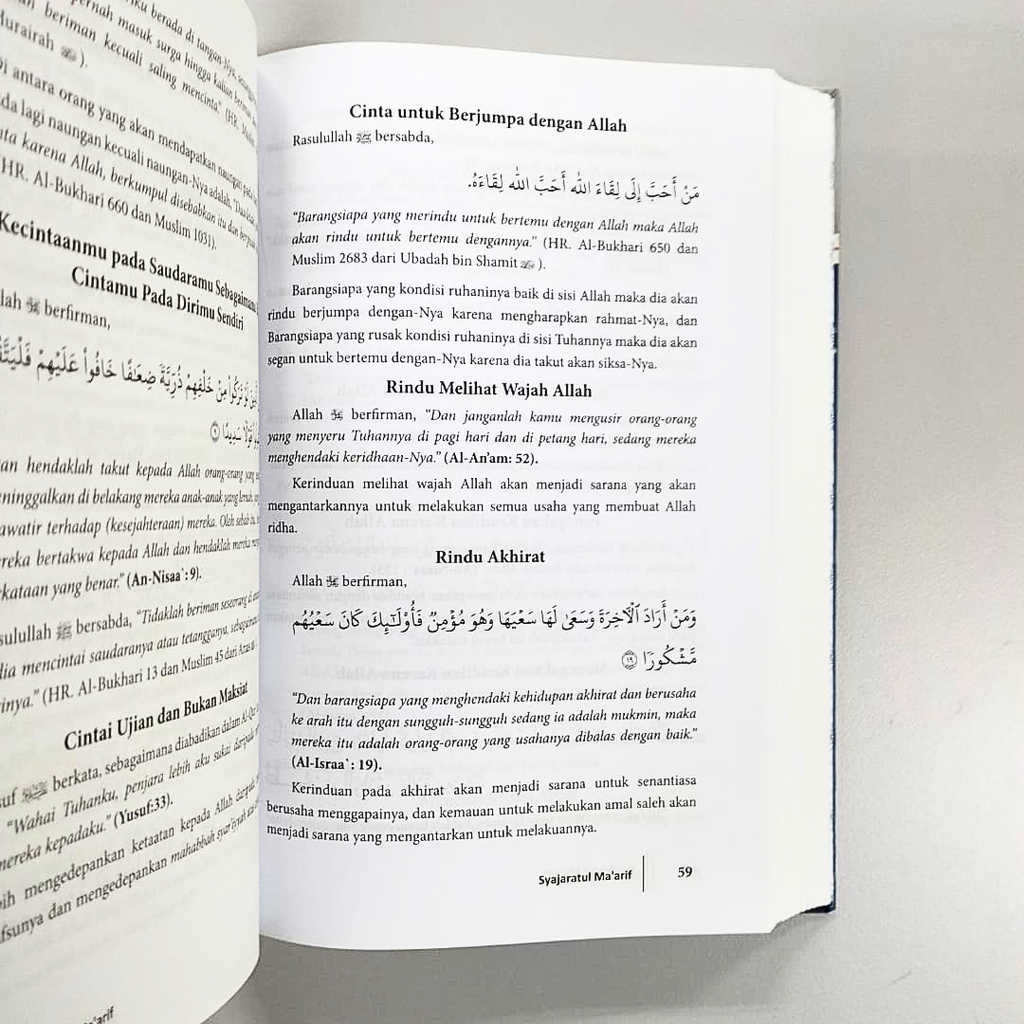 beriman kecuali saling mencinta." (HR.
Hurairah ﷺ).
Di antara orang yang akan mendapatkan naungan
ada lagi naungan kecuali naungan-Nya adalah,
karena Allah, berkumpul disebabkan itu dan
(HR. Al-Bukhari 660 dan Muslim 1031).
Kecintaanmu pada Saudaramu Sebagaimana
Cintamu Pada Dirimu Sendiri
berfirman,
خَلْفِهِمْ ذُرِّيَّةً ضِعَٰفًا خَافُوا۟ عَلَيْهِمْ
سَدِيدًا ٩
hendaklah takut kepada Allah orang-orang yang
meninggalkan di belakang mereka anak-anak yang lemah,
terhadap (kesejahteraan) mereka. Oleh sebab itu
bertakwa kepada Allah dan hendaklah mereka
perkataan yang benar." (An-Nisaa`: 9).
bersabda, "Tidaklah beriman seseorang di
dia mencintai saudaranya atau tetangganya, sebagaimana
(HR. Al-Bukhari 13 dan Muslim 45 dari Anas
Cintai Ujian dan Bukan Maksiat
berkata, sebagaimana diabadikan dalam
"Wahai Tuhanku, penjara lebih aku sukai daripada
mereka kepadaku." (Yusuf:33).
mengedepankan ketaatan kepada Allah
dan mengedepankan mahabbah syar'iyyah
Cinta untuk Berjumpa dengan Allah
Rasulullah ﷺ bersabda,
مَنْ أَحَبَّ إِلَى لِقَاءَ اللهِ أَحَبَّ اللهُ لِقَاءَهُ.
"Barangsiapa yang merindu untuk bertemu dengan Allah maka Allah
akan rindu untuk bertemu dengannya." (HR. Al-Bukhari 650 dan
Muslim 2683 dari Ubadah bin Shamit).
Barangsiapa yang kondisi ruhaninya baik di sisi Allah maka dia akan
rindu berjumpa dengan-Nya karena mengharapkan rahmat-Nya, dan
Barangsiapa yang rusak kondisi ruhaninya di sisi Tuhannya maka dia akan
segan untuk bertemu dengan-Nya karena dia takut akan siksa-Nya.
Rindu Melihat Wajah Allah
Allah berfirman, "Dan janganlah kamu mengusir orang-orang
yang menyeru Tuhannya di pagi hari dan di petang hari, sedang mereka
menghendaki keridhaan-Nya." (Al-An'am: 52).
Kerinduan melihat wajah Allah akan menjadi sarana yang akan
mengantarkannya untuk melakukan semua usaha yang membuat Allah
ridha.
Rindu Akhirat
Allah berfirman,
وَمَنْ أَرَادَ ٱلْآخِرَةَ وَسَعَىٰ لَهَا سَعْيَهَا وَهُوَ مُؤْمِنٌ فَأُو۟لَٰٓئِكَ كَانَ سَعْيُهُم
مَّشْكُورًا ١٩
"Dan barangsiapa yang menghendaki kehidupan akhirat dan berusaha
ke arah itu dengan sungguh-sungguh sedang ia adalah mukmin, maka
mereka itu adalah orang-orang yang usahanya dibalas dengan baik."
(Al-Israa`: 19).
Kerinduan pada akhirat akan menjadi sarana untuk senantiasa
berusaha menggapainya, dan kemauan untuk melakukan amal saleh akan
menjadi sarana yang mengantarkan untuk melakuannya.
Syajaratul Ma'arif
59